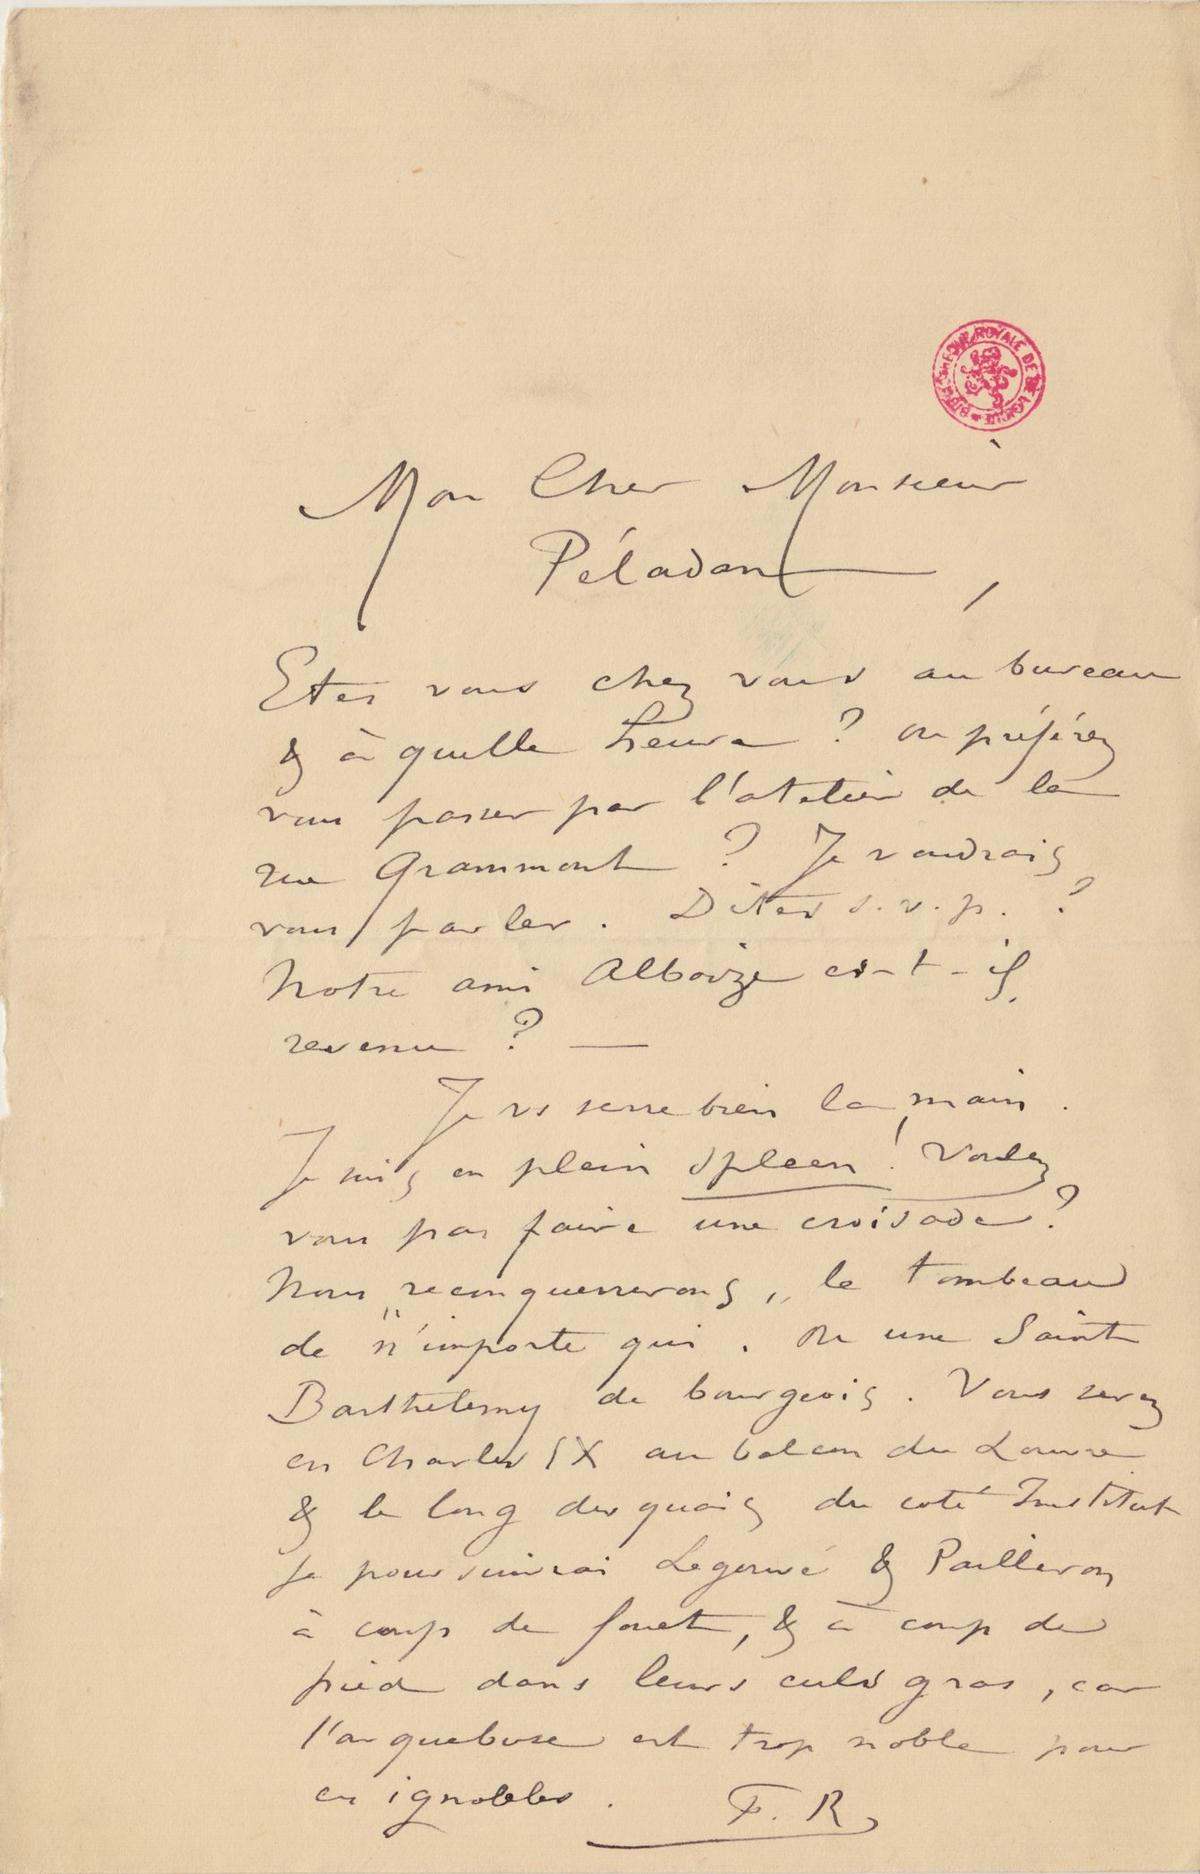 BIBLIOTHEQUE ROYALE DE BELGIQUE
Mon Cher Monsieur
Péladan,
Etes vous chez vous au bureau
& à quelle heure ? ou préférez
vous passer par l'atelier de la
rue Grammont ? Je voudrais
vous parler. Dites s.v.p. ?
Notre ami Alboize est-il
revenu ? —
Je vs serre bien la main.
Je suis en plein spleen ! Voulez
vous pas faire une croisade ?
Nous "reconquerrerons" le tombeau
de n'importe qui. Ou une Saint
Barthelemy de bourgeois. Vous serez
en Charles IX au balcon du Louvre
& le long des quais du coté Institut
je poursuivrai Legouvé & Pailleron
à coup de fouet, & à coup de
pied dans leurs culs gras, car
l'arquebuse est trop noble pour
ces ignobles. F. R